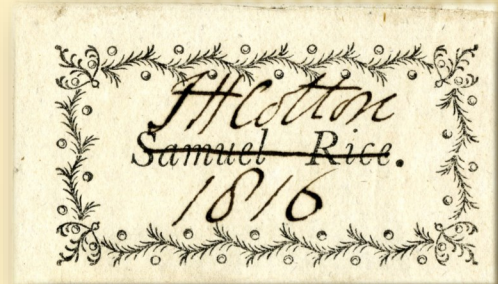 JHCotton
Samuel Rice.
1816